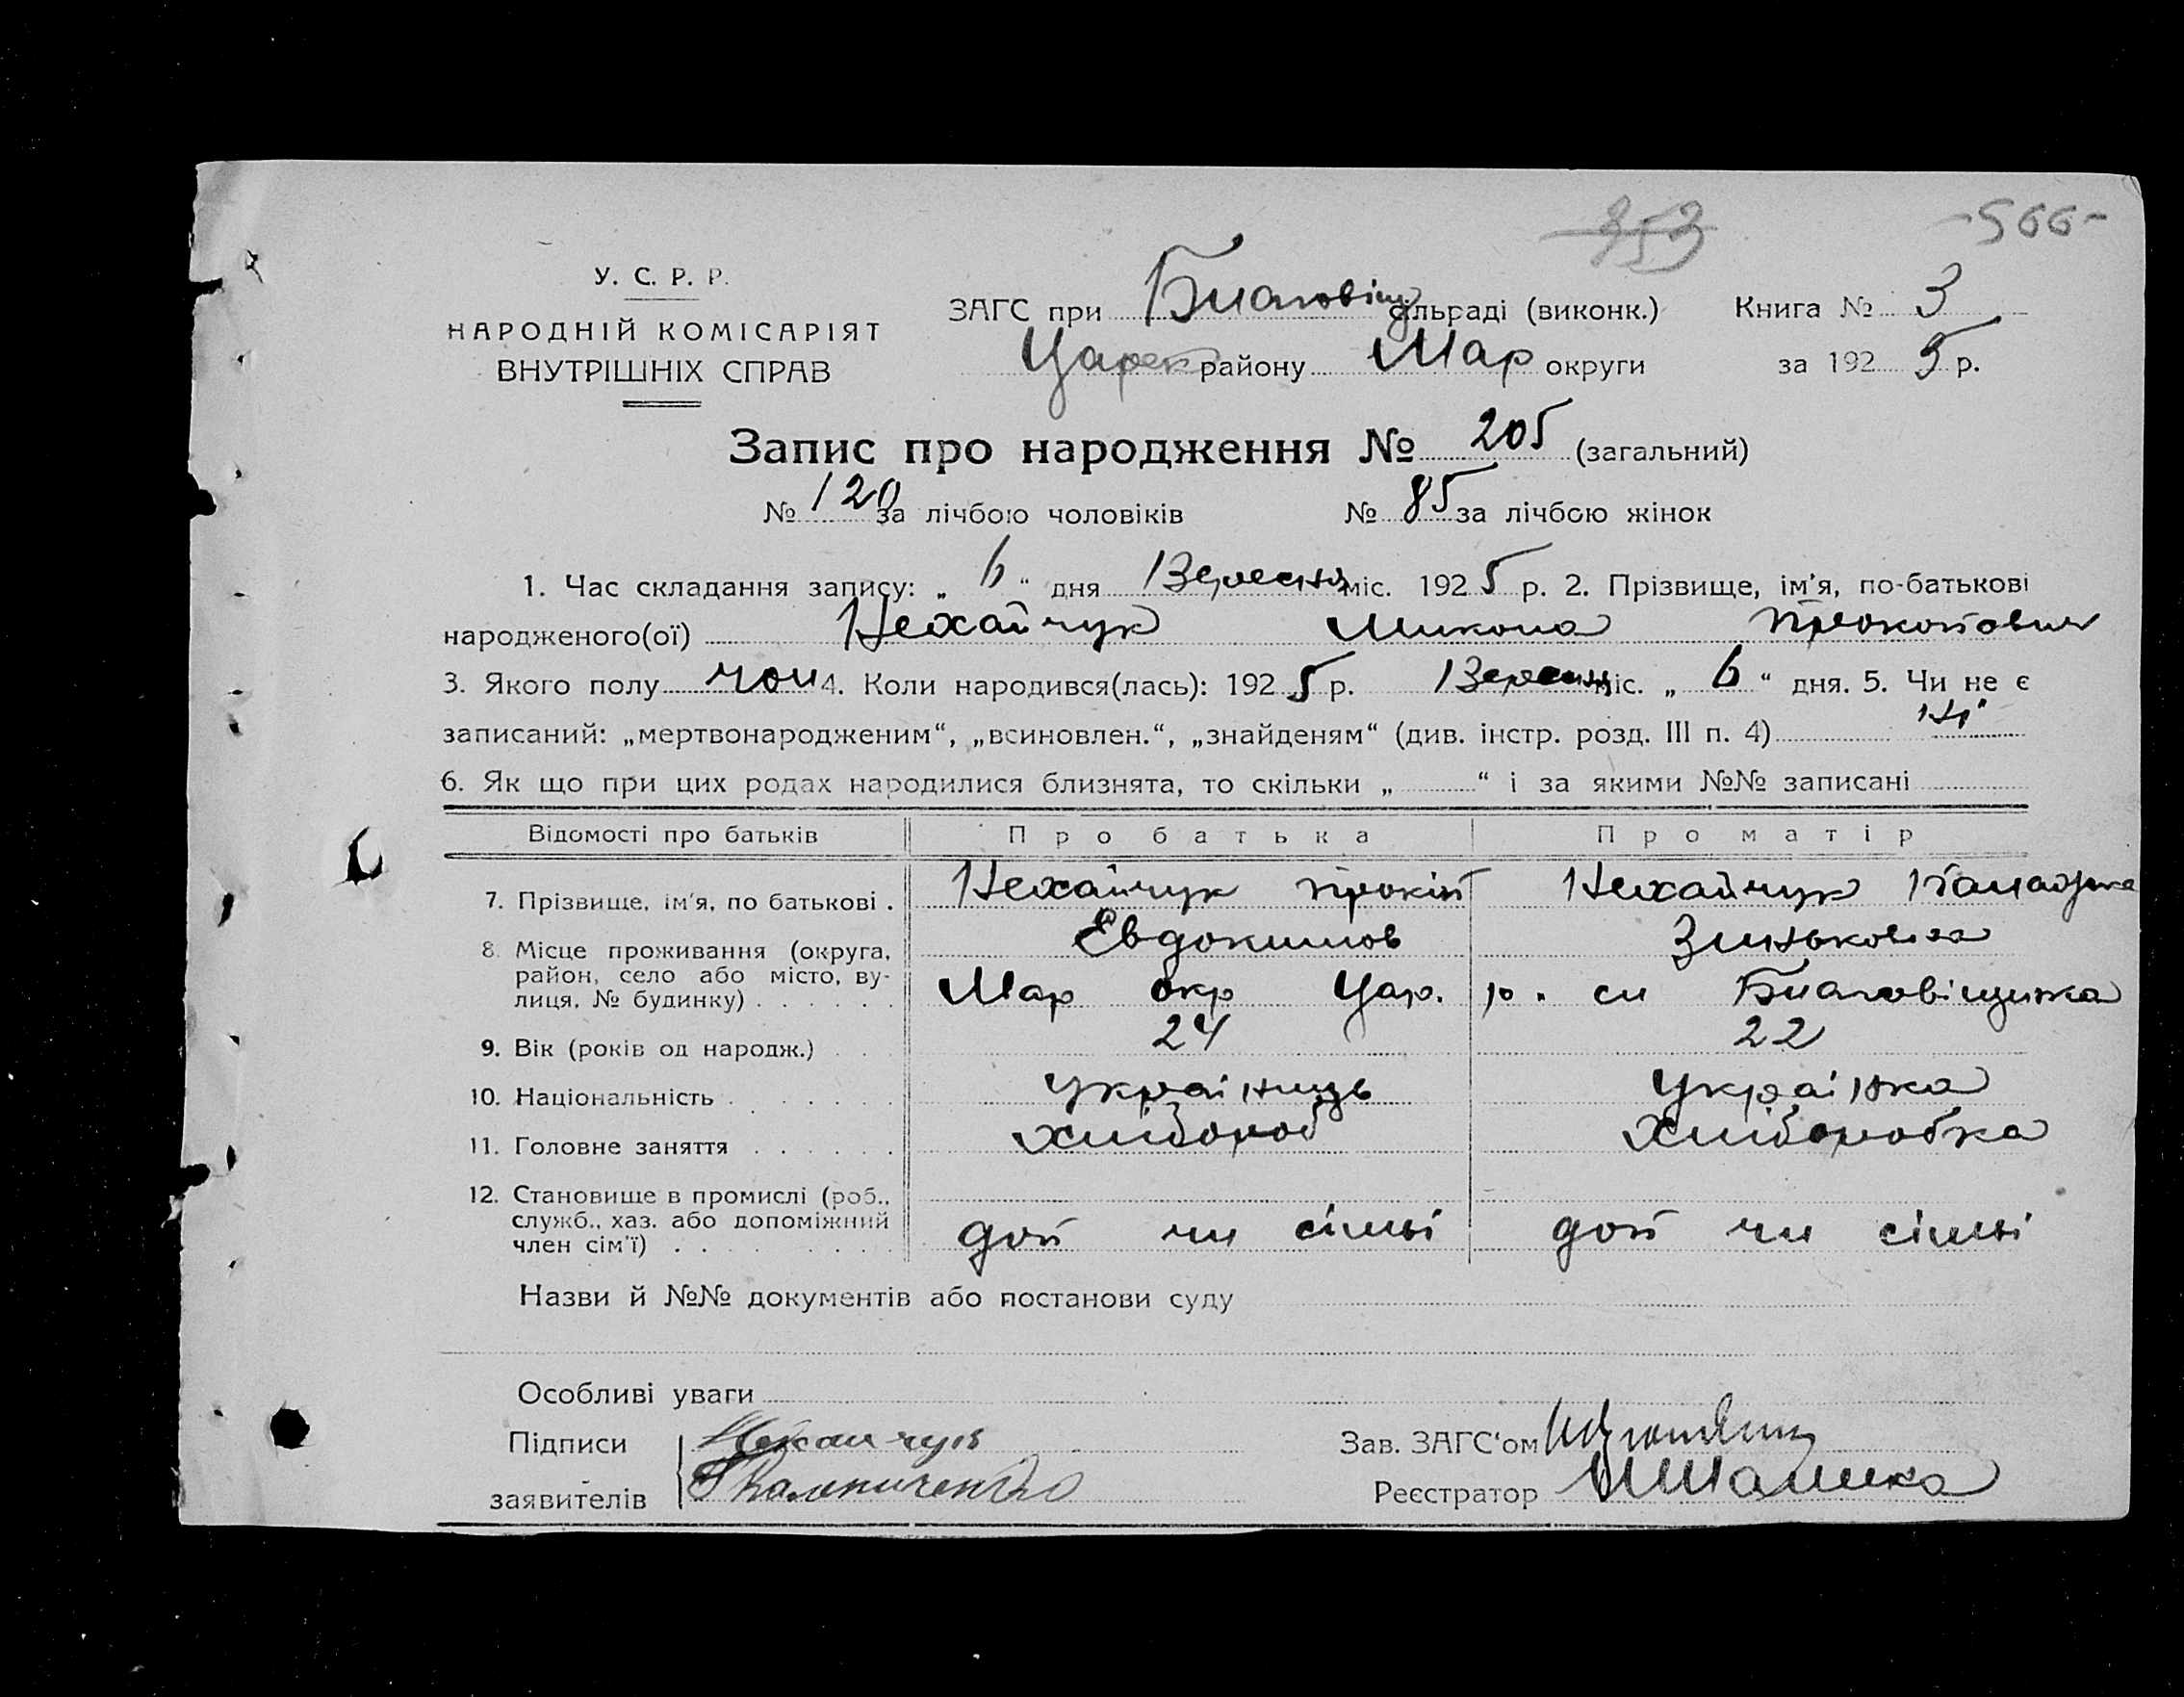 353 -566-
У. С. Р. Р.
НАРОДНІЙ КОМІСАРІЯТ
ВНУТРІШНІХ СПРАВ
ЗАГС при Благовіщ сільраді (виконк.) Книга № 3
Царек району Мар округи за 1925 р.
Запис про народження № 205 (загальний)
№ 120 за лічбою чоловіків № 85 за лічбою жінок
1. Час складання запису: „ 6 “ дня Вересня міс. 1925 р. 2. Прізвище, ім'я, по-батькові
народженого(ої) Нехайчук Микола Прокопович
3. Якого полу чол 4. Коли народився(лась): 1925 р. Вересня міс. „ 6 “ дня. 5. Чи не є
записаний: „мертвонародженим“, „всиновлен.“, „знайденям“ (див. інстр. розд. III п. 4) Ні
6. Як що при цих родах народилися близнята, то скільки „ “ і за якими №№ записані
Відомості про батьків Про батька Про матір
7. Прізвище, ім'я, по батькові . Нехайчук Прокіп Нехайчук
Евдокимов Зиньковна
8. Місце проживання (округа, район, село або місто, вулиця, № будинку) . . . . . . Мар окр Цар. р. сл Благовіщинка
9. Вік (років од народж.) . . . 24 22
10. Національність . . . . . . . українць українка
11. Головне заняття . . . . . . хлібороб хліборобка
12. Становище в промислі (роб., служб., хаз. або допоміжний член сім'ї) . . . . . . . . доп чл сімьі доп чл сімьі
Назви й №№ документів або постанови суду
Особливі уваги
Підписи Нехайчук Зав. ЗАГС'ом
заявителів Реєстратор